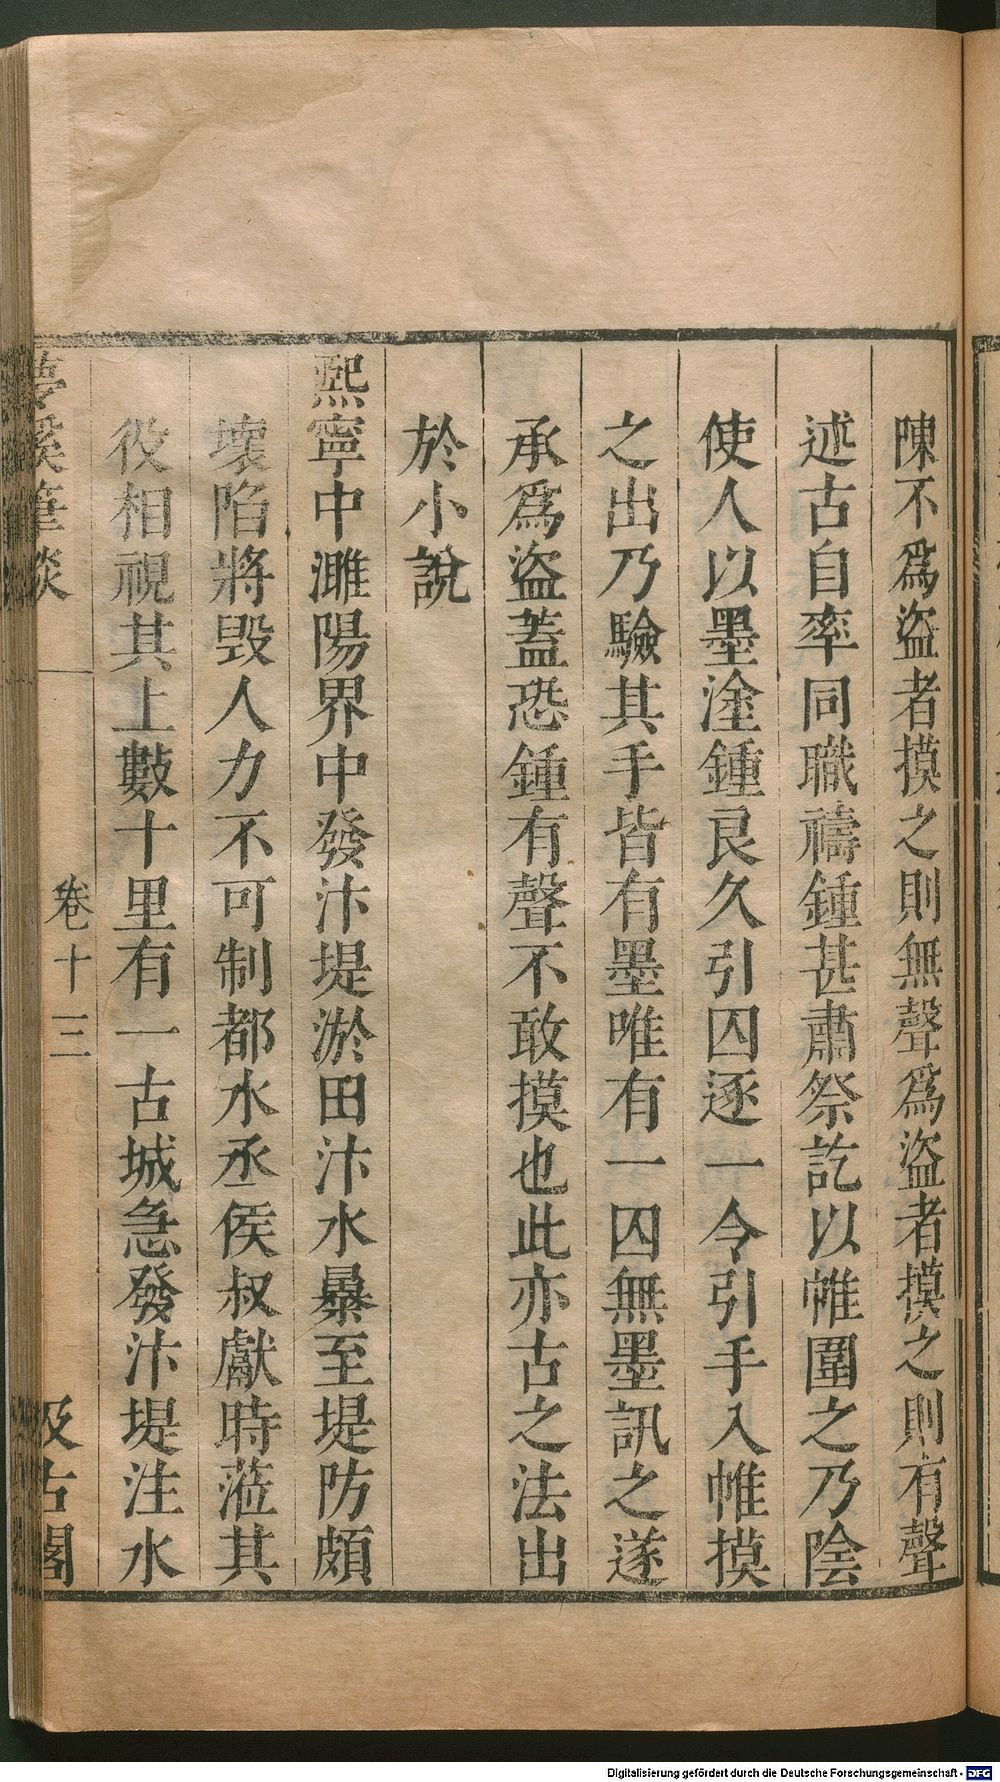 陳不爲盜者摸之則無聲爲盜者摸之則有聲
述古自率同職禱鍾甚肅祭訖以帷圍之乃陰
使人以墨塗鍾良久引囚逐一令引手入帷摸
之出乃驗其手皆有墨唯有一囚無墨訊之遂
承爲盜蓋恐鍾有聲不敢摸也此亦古之法出
於小說
熙寧中濉陽界中發汴堤淤田汴水暴至堤防頗
壞陷將毀人力不可制都水丞侯叔獻時蒞其
役相視其上數十里有一古城急發汴堤注水
夢溪筆談
卷十三
汲古閣
Digitalisierung gefördert durch die Deutsche Forschungsgemeinschaft - DFG